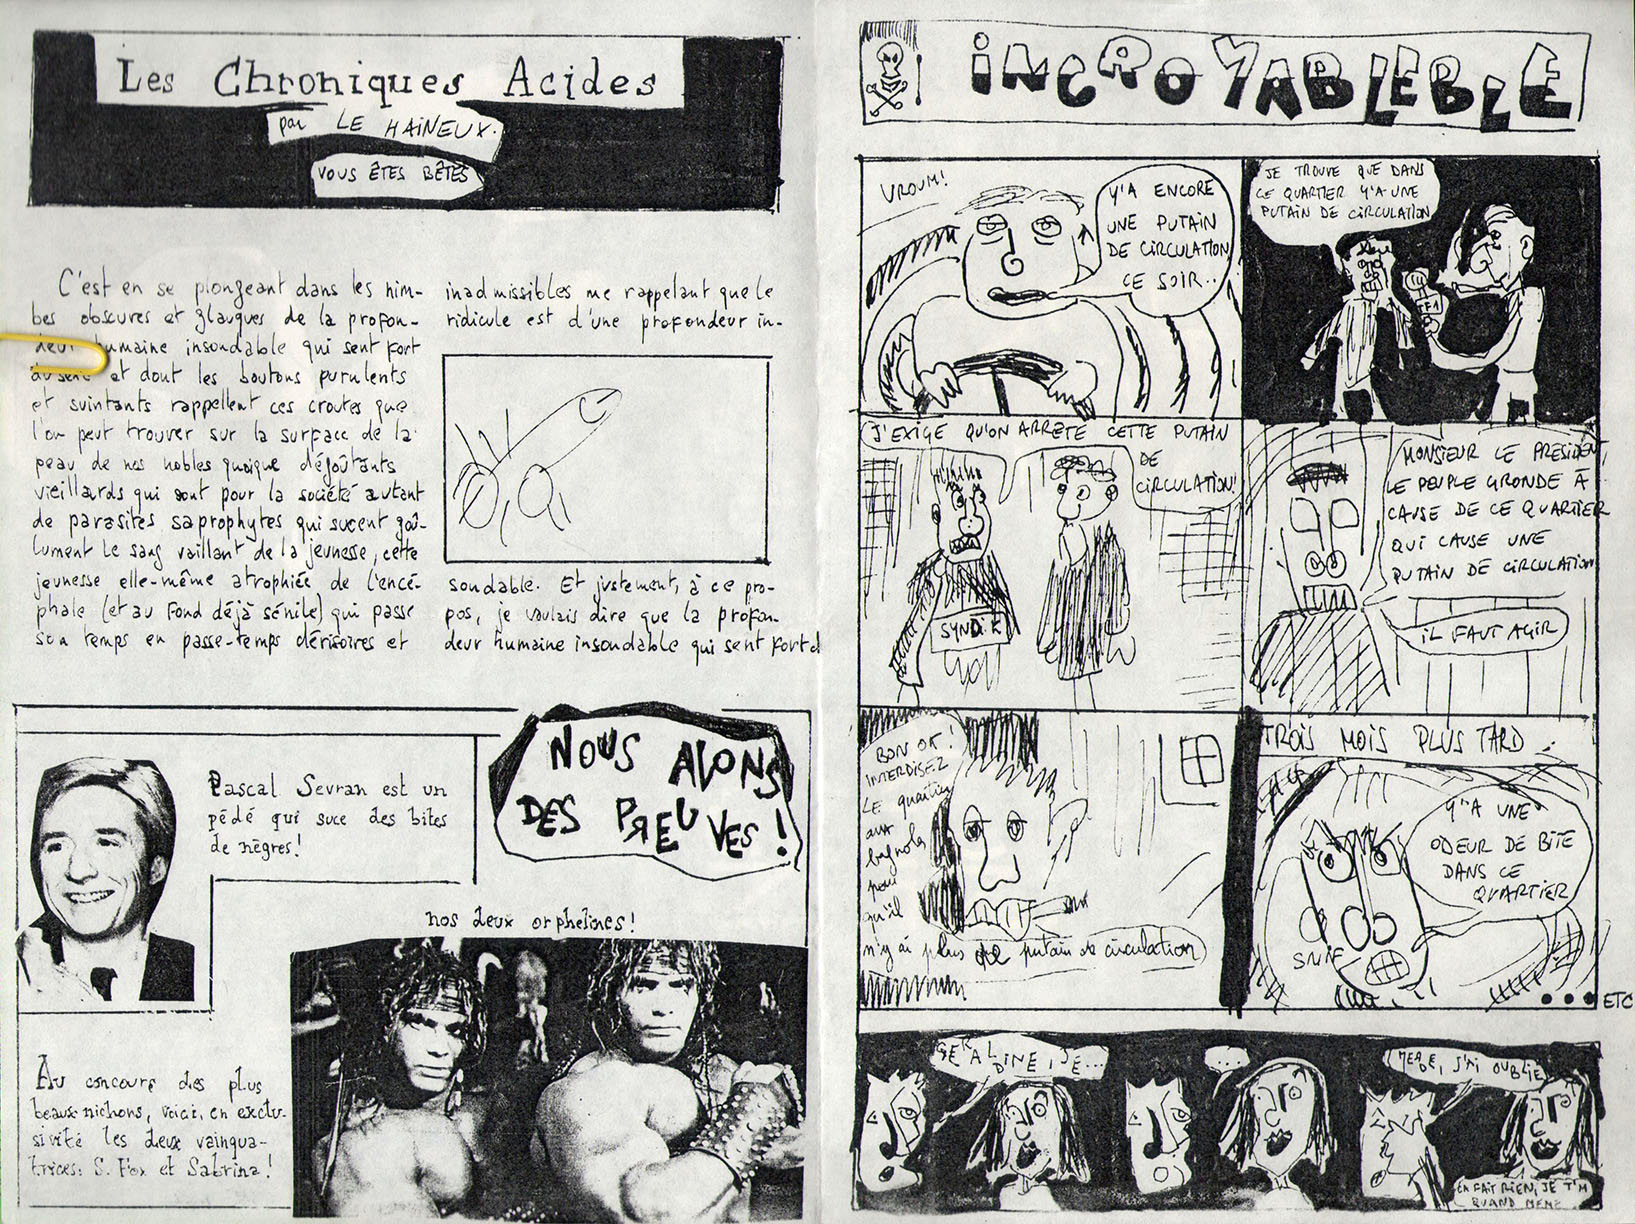 Les Chroniques Acides
par LE HAINEUX.
VOUS ÊTES BÊTES
C'est en se plongeant dans les nim-
bes obscures et glauques de la profon-
deur humaine insondable qui sent fort
et dont les boutons purulents
et suintants rappellent ces croutes que
l'on peut trouver sur la surface de la
peau de nos nobles quoique dégoûtants
vieillards qui sont pour la société autant
de parasites saprophytes qui sucent goû-
lument le sang vaillant de la jeunesse, cette
jeunesse elle-même atrophiée de l'encé-
phale (et au fond déjà sénile) qui passe
son temps en passe-temps dérisoires et
inadmissibles me rappelant que le
ridicule est d'une profondeur in-
sondable. Et justement, à ce pro-
pos, je voulais dire que la profon-
deur humaine insondable qui sent fort d
NOUS AVONS
DES PREUVES!
Pascal Sevran est un
pédé qui suce des bites
de nègres!
nos deux orphelines!
Au concours des plus
beaux nichons, voici, en exclu-
sivité les deux vainqua-
trices: S. Fox et Sabrina!
INCROYABLEBLE
VROUM!
Y'A ENCORE
UNE PUTAIN
DE CIRCULATION
CE SOIR...
JE TROUVE QUE DANS
CE QUARTIER Y'A UNE
PUTAIN DE CIRCULATION
TF1
J'EXIGE QU'ON ARRETE CETTE PUTAIN
DE
CIRCULATION!
SYNDIK
MONSIEUR LE PRESIDENT,
LE PEUPLE GRONDE À
CAUSE DE CE QUARTIER
QUI CAUSE UNE
PUTAIN DE CIRCULATION
IL FAUT AGIR
BON OK!
INTERDISEZ
LE quartier
aux
bagnoles
pour
qu'il
n'y ai plus de putain de circulation
TROIS MOIS PLUS TARD
Y'A UNE
ODEUR DE BITE
DANS CE
QUARTIER
SNIF
... ETC
GERALDINE, JE...
...
MERDE, J'AI OUBLIÉ
EN FAIT RIEN, JE T'M
QUAND MEME